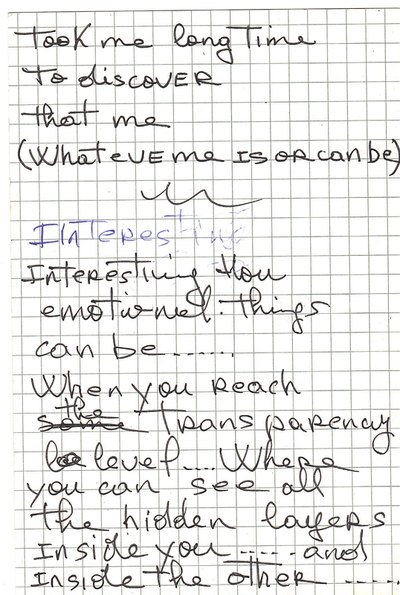 Took me long Time
To discover
that me
(Whateve me is or can be)
Interesting
Interestiing How
emotiornel things
can be......
When you reach
some the Transparency
level.... Where
you can see all
the hidden layers
Inside you ..... and
Inside the other .....